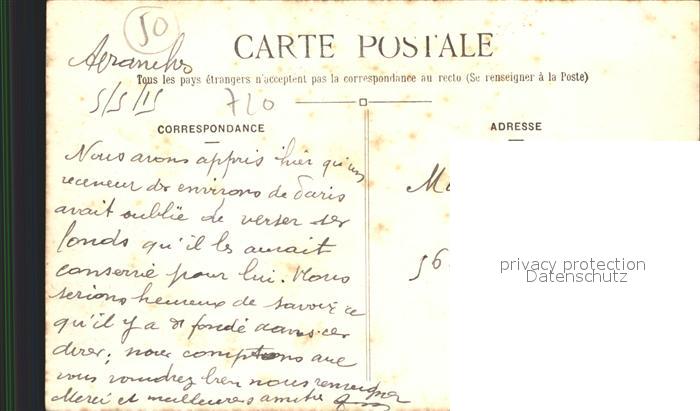 50
CARTE POSTALE
Avranches
Tous les pays étrangers n'acceptent pas la correspondance au recto (Se renseigner à la Poste)
5/5/15
720
CORRESPONDANCE
ADRESSE
Nous avons appris hier qu'un
receveur des environs de Paris
avait oublié de verser ses
fonds qu'il les aurait
conservé pour lui. Nous
serions heureux de savoir ce
qu'il y a de fondé dans ces
dires; nous comptons que
vous voudrez bien nous renseigner
Merci et meilleures amitiés
M
56
privacy protection
Datenschutz